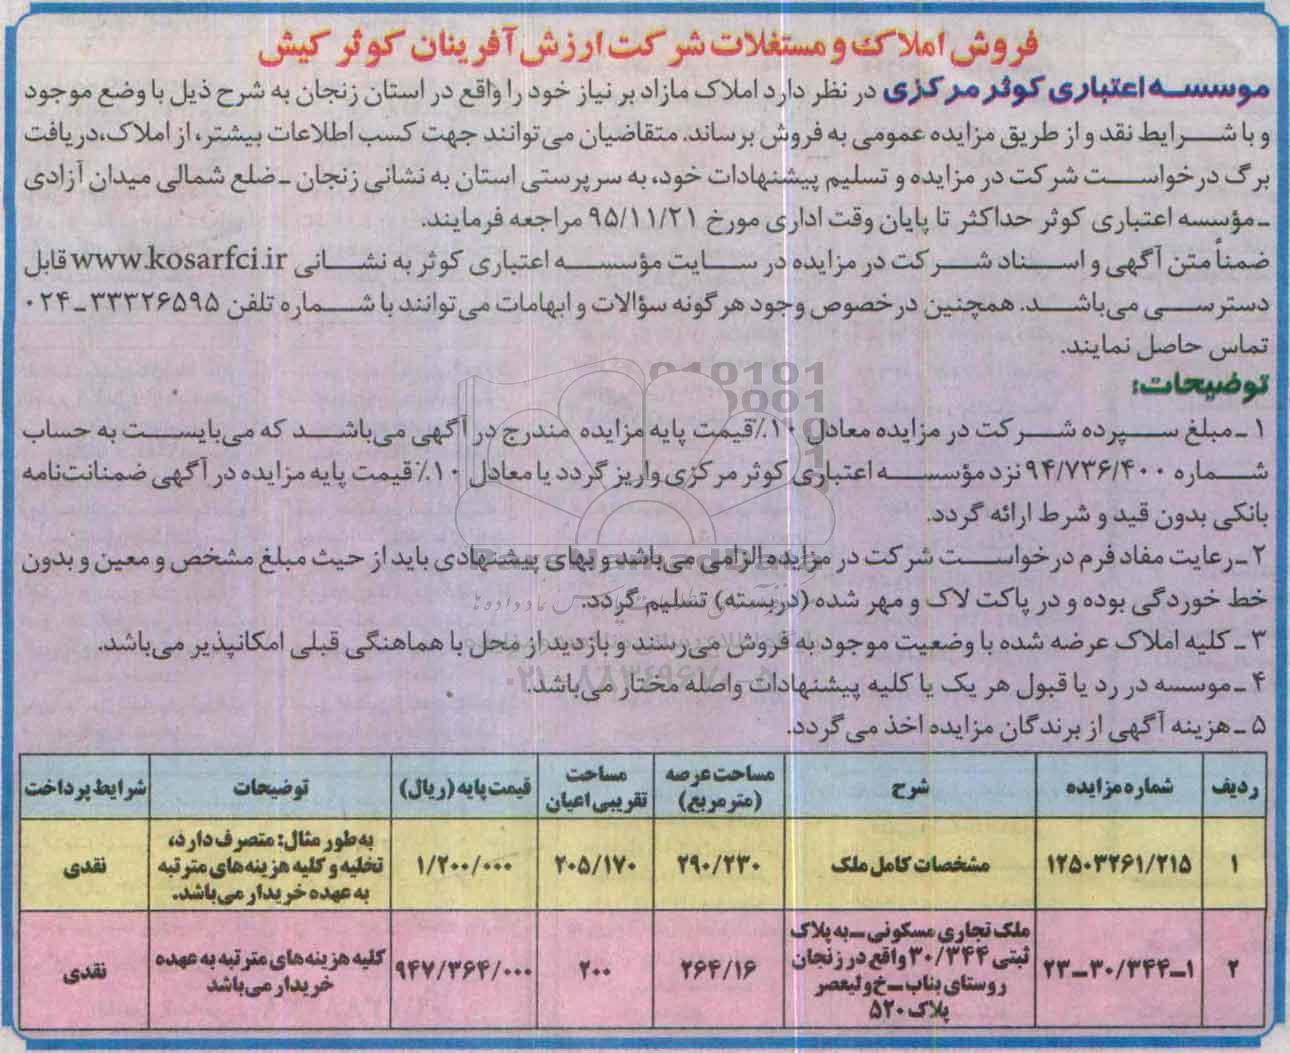 فروش املاک و مستغلات شرکت ارزش آفرینان کوثر کیش
موسسه اعتباری کوثر مرکزی در نظر دارد املاک مازاد بر نیاز خود را واقع در استان زنجان به شرح ذیل با وضع موجود
و با شرایط نقد و از طریق مزایده عمومی به فروش برساند. متقاضیان می‌توانند جهت کسب اطلاعات بیشتر، از املاک، دریافت
برگ درخواست شرکت در مزایده و تسلیم پیشنهادات خود، به سرپرستی استان به نشانی زنجان ـ ضلع شمالی میدان آزادی
ـ مؤسسه اعتباری کوثر حداکثر تا پایان وقت اداری مورخ ۹۵/۱۱/۲۱ مراجعه فرمایند.
ضمناً متن آگهی و اسناد شرکت در مزایده در سایت مؤسسه اعتباری کوثر به نشانی www.kosarfci.ir قابل
دسترسی می‌باشد. همچنین درخصوص وجود هرگونه سؤالات و ابهامات می‌توانند با شماره تلفن ۳۳۳۲۶۵۹۵ـ۰۲۴
تماس حاصل نمایند.
توضیحات:
۱ ـ مبلغ سپرده شرکت در مزایده معادل ۱۰٪ قیمت پایه مزایده مندرج در آگهی می‌باشد که می‌بایست به حساب
شماره ۹۴/۷۳۶/۴۰۰ نزد مؤسسه اعتباری کوثر مرکزی واریز گردد یا معادل ۱۰٪ قیمت پایه مزایده در آگهی ضمنانت‌نامه
بانکی بدون قید و شرط ارائه گردد.
۲ ـ رعایت مفاد فرم درخواست شرکت در مزایده الزامی می‌باشد و بهای پیشنهادی باید از حیث مبلغ مشخص و معین و بدون
خط خوردگی بوده و در پاکت لاک و مهر شده (دربسته) تسلیم گردد.
۳ ـ کلیه املاک عرضه شده با وضعیت موجود به فروش می‌رسند و بازدید از محل با هماهنگی قبلی امکانپذیر می‌باشد.
۴ ـ موسسه در رد یا قبول هر یک یا کلیه پیشنهادات واصله مختار می‌باشد.
۵ ـ هزینه آگهی از برندگان مزایده اخذ می‌گردد.
ردیف شماره مزایده شرح مساحت عرصه (مترمربع) مساحت تقریبی اعیان قیمت پایه (ریال) توضیحات شرایط پرداخت
۱ ۱۲۵۰۳۲۶۱/۲۱۵ مشخصات کامل ملک ۲۹۰/۲۳۰ ۲۰۵/۱۷۰ ۱/۲۰۰/۰۰۰ به طور مثال: متصرف دارد، تخلیه و کلیه هزینه‌های مترتبه به عهده خریدار می‌باشد. نقدی
۲ ۱ـ۳۰/۳۴۴ـ۲۳ ملک تجاری مسکونی ـ به پلاک ثبتی ۳۰/۳۴۴ واقع در زنجان روستای بناب ـ خ ولیعصر پلاک ۵۲۰ ۲۶۴/۱۶ ۲۰۰ ۹۴۷/۳۶۴/۰۰۰ کلیه هزینه‌های مترتبه به عهده خریدار می‌باشد نقدی